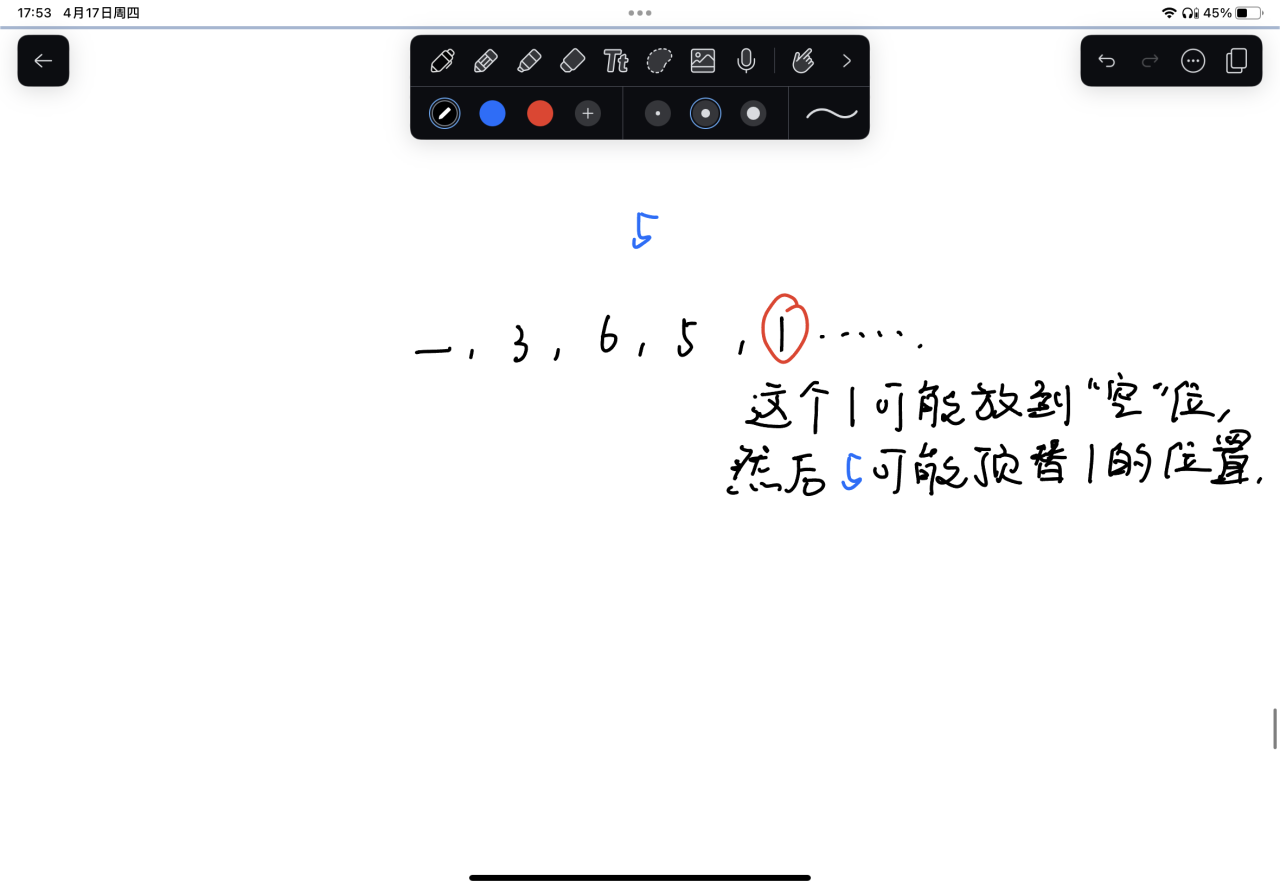 17:53 4月17日周四
45%
Tt
5
_, 3, 6, 5, 1······.
这个1可能放到“空”位,
然后5可能顶替1的位置.